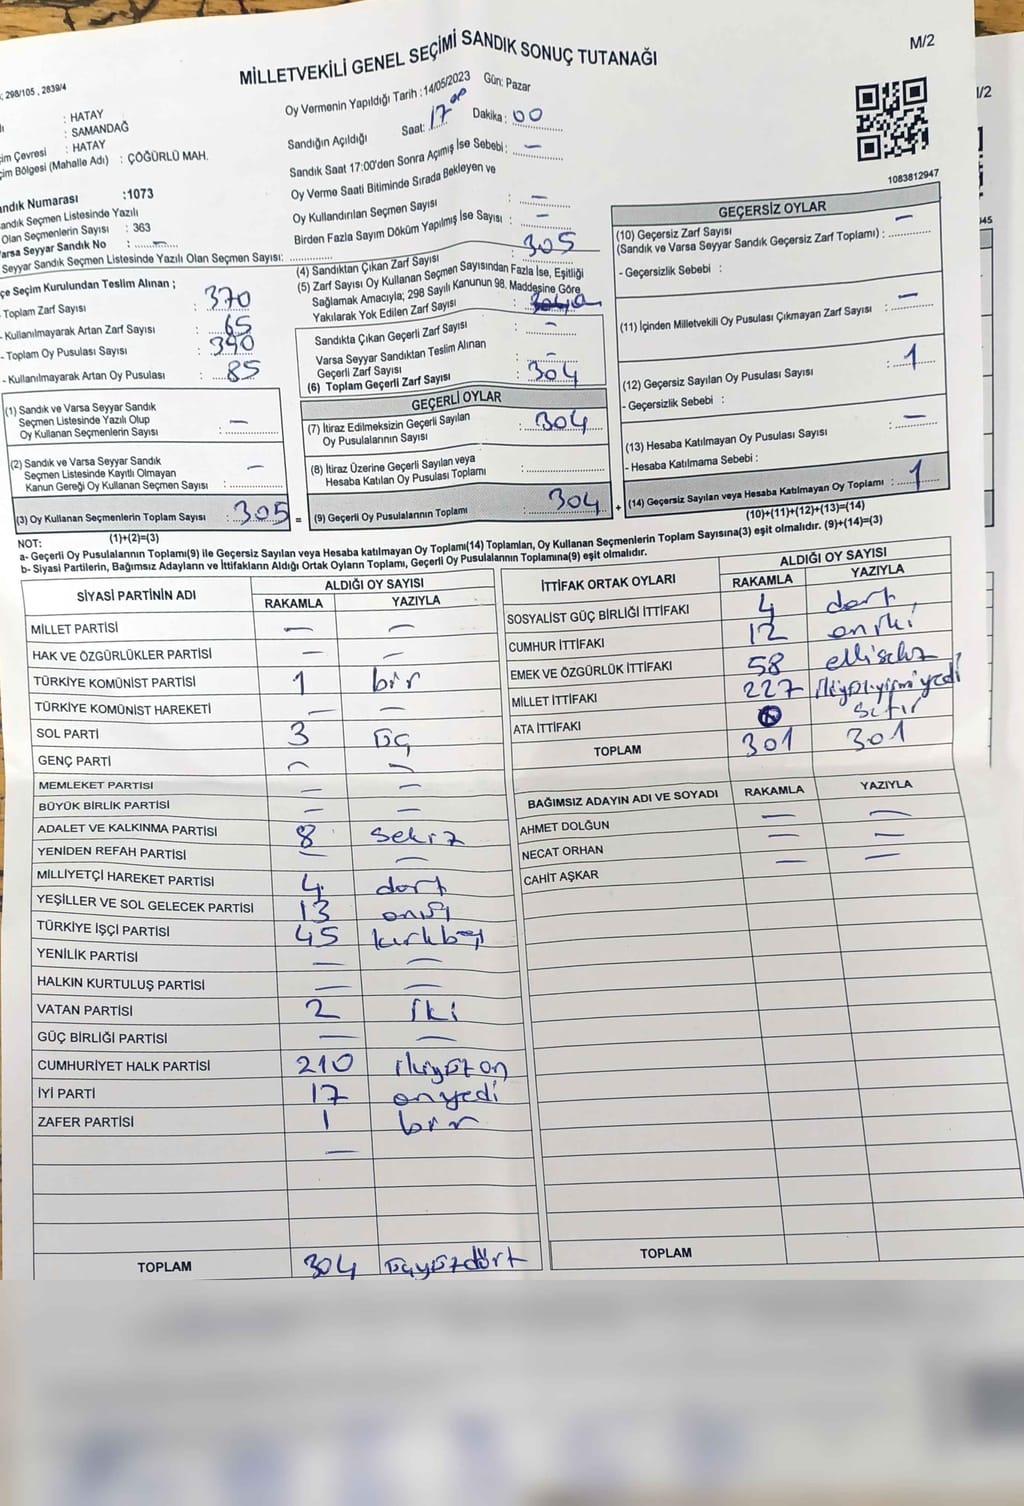 MİLLETVEKİLİ GENEL SEÇİMİ SANDIK SONUÇ TUTANAĞI
M/2
298/105 , 2839/4
: HATAY
: SAMANDAĞ
im Çevresi : HATAY
im Bölgesi (Mahalle Adı) : ÇÖĞÜRLÜ MAH.
ndık Numarası :1073
andık Seçmen Listesinde Yazılı
Olan Seçmenlerin Sayısı : 363
Varsa Seyyar Sandık No : —
Seyyar Sandık Seçmen Listesinde Yazılı Olan Seçmen Sayısı:
çe Seçim Kurulundan Teslim Alınan ;
Toplam Zarf Sayısı : 370
- Kullanılmayarak Artan Zarf Sayısı : 65
- Toplam Oy Pusulası Sayısı : 390
- Kullanılmayarak Artan Oy Pusulası : 85
(1) Sandık ve Varsa Seyyar Sandık
Seçmen Listesinde Yazılı Olup
Oy Kullanan Seçmenlerin Sayısı : —
(2) Sandık ve Varsa Seyyar Sandık
Seçmen Listesinde Kayıtlı Olmayan
Kanun Gereği Oy Kullanan Seçmen Sayısı : —
(3) Oy Kullanan Seçmenlerin Toplam Sayısı : 305 =
(1)+(2)=(3)
Oy Vermenin Yapıldığı Tarih : 14/05/2023 Gün: Pazar
Sandığın Açıldığı Saat: 17 Dakika : 00
Sandık Saat 17:00'den Sonra Açmış İse Sebebi : —
Oy Verme Saati Bitiminde Sırada Bekleyen ve
Oy Kullandırılan Seçmen Sayısı : —
Birden Fazla Sayım Döküm Yapılmış İse Sayısı : —
(4) Sandıktan Çıkan Zarf Sayısı : 305
(5) Zarf Sayısı Oy Kullanan Seçmen Sayısından Fazla İse, Eşitliği
Sağlamak Amacıyla; 298 Sayılı Kanunun 98. Maddesine Göre
Yakılarak Yok Edilen Zarf Sayısı :
Sandıkta Çıkan Geçerli Zarf Sayısı : —
Varsa Seyyar Sandıktan Teslim Alınan
Geçerli Zarf Sayısı : —
(6) Toplam Geçerli Zarf Sayısı : 304
GEÇERLİ OYLAR
(7) İtiraz Edilmeksizin Geçerli Sayılan
Oy Pusulalarının Sayısı : 304
(8) İtiraz Üzerine Geçerli Sayılan veya
Hesaba Katılan Oy Pusulası Toplamı :
(9) Geçerli Oy Pusulalarının Toplamı : 304 +
1083812947
GEÇERSİZ OYLAR
(10) Geçersiz Zarf Sayısı
(Sandık ve Varsa Seyyar Sandık Geçersiz Zarf Toplamı) : —
- Geçersizlik Sebebi :
(11) İçinden Milletvekili Oy Pusulası Çıkmayan Zarf Sayısı : —
(12) Geçersiz Sayılan Oy Pusulası Sayısı : 1
- Geçersizlik Sebebi :
(13) Hesaba Katılmayan Oy Pusulası Sayısı : —
- Hesaba Katılmama Sebebi :
(14) Geçersiz Sayılan veya Hesaba Katılmayan Oy Toplamı : 1
(10)+(11)+(12)+(13)=(14)
NOT:
a- Geçerli Oy Pusulalarının Toplamı(9) ile Geçersiz Sayılan veya Hesaba katılmayan Oy Toplamı(14) Toplamları, Oy Kullanan Seçmenlerin Toplam Sayısına(3) eşit olmalıdır. (9)+(14)=(3)
b- Siyasi Partilerin, Bağımsız Adayların ve İttifakların Aldığı Ortak Oyların Toplamı, Geçerli Oy Pusulalarının Toplamına(9) eşit olmalıdır.
SİYASİ PARTİNİN ADI ALDIĞI OY SAYISI
RAKAMLA YAZIYLA
MİLLET PARTİSİ — —
HAK VE ÖZGÜRLÜKLER PARTİSİ — —
TÜRKİYE KOMÜNİST PARTİSİ 1 bir
TÜRKİYE KOMÜNİST HAREKETİ — —
SOL PARTİ 3 üç
GENÇ PARTİ — —
MEMLEKET PARTİSİ — —
BÜYÜK BİRLİK PARTİSİ — —
ADALET VE KALKINMA PARTİSİ 8 sekiz
YENİDEN REFAH PARTİSİ — —
MİLLİYETÇİ HAREKET PARTİSİ 4 dört
YEŞİLLER VE SOL GELECEK PARTİSİ 13 onüç
TÜRKİYE İŞÇİ PARTİSİ 45 kırkbeş
YENİLİK PARTİSİ — —
HALKIN KURTULUŞ PARTİSİ — —
VATAN PARTİSİ 2 iki
GÜÇ BİRLİĞİ PARTİSİ — —
CUMHURİYET HALK PARTİSİ 210 ikiyüzon
İYİ PARTİ 17 onyedi
ZAFER PARTİSİ 1 bir
—
TOPLAM 304 üçyüzdört
İTTİFAK ORTAK OYLARI ALDIĞI OY SAYISI
RAKAMLA YAZIYLA
SOSYALİST GÜÇ BİRLİĞİ İTTİFAKI 4 dört
CUMHUR İTTİFAKI 12 oniki
EMEK VE ÖZGÜRLÜK İTTİFAKI 58 ellisekiz
MİLLET İTTİFAKI 227 ikiyüzyirmiyedi
ATA İTTİFAKI sıfır
TOPLAM 301 301
BAĞIMSIZ ADAYIN ADI VE SOYADI RAKAMLA YAZIYLA
AHMET DOLĞUN — —
NECAT ORHAN — —
CAHİT AŞKAR — —
TOPLAM